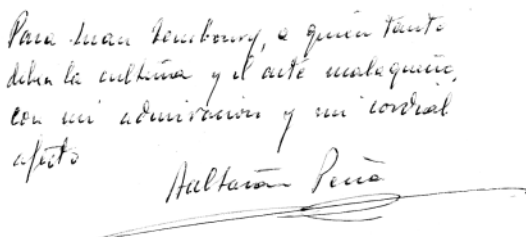 Para Juan Temboury, a quien tanto
deben la cultura y el arte malagueño,
con mi admiración y mi cordial
afecto
Baltasar Peña